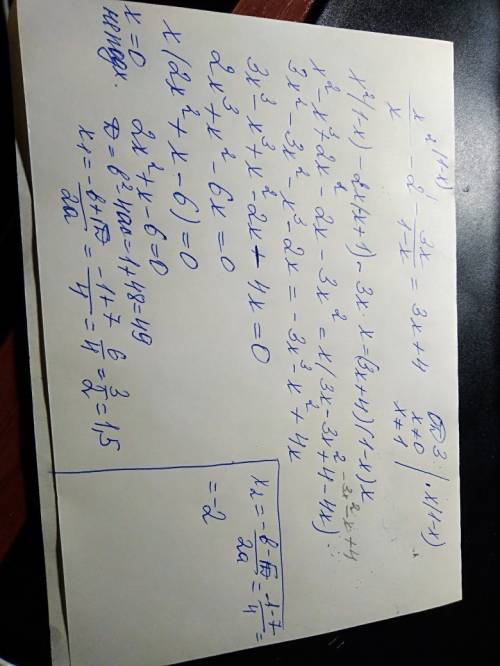 x² (1-x) / x - 2 - 3x / 1-x = 3x + 4 ОДЗ: x ≠ 0 x ≠ 1 | · x(1-x)
x²(1-x) - 2x(x+1) - 3x · x = (3x+4)(1-x)x
x² - x³ + 2x² - 2x - 3x² = x(3x - 3x² + 4 - 4x)
-3x² - x + 4
3x² - 3x² - x³ - 2x = -3x³ - x² + 4x
3x³ - x³ + x² - 2x - 4x = 0
2x³ + x² - 6x = 0
x(2x² + x - 6) = 0
x = 0 2x² + x - 6 = 0
D = b² 4ac = 1 + 48 = 49
x₁ = -b + √D / 2a = -1 + 7 / 4 = 6 / 4 = 3 / 2 = 1,5
x₂ = -b - √D / 2a = -1 - 7 / 4 =
= -2